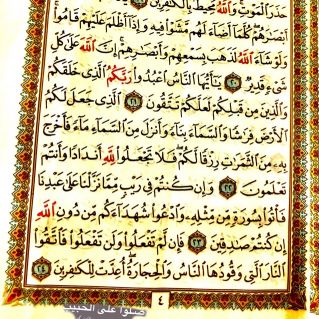 حَذَرَ ٱلْمَوْتِ وَٱللَّهُ مُحِيطٌۢ بِٱلْكَٰفِرِينَ ١٩
أَبْصَٰرَهُمْ كُلَّمَآ أَضَآءَ لَهُم مَّشَوْا۟ فِيهِ وَإِذَآ أَظْلَمَ عَلَيْهِمْ قَامُوا۟
وَلَوْ شَآءَ ٱللَّهُ لَذَهَبَ بِسَمْعِهِمْ وَأَبْصَٰرِهِمْ إِنَّ ٱللَّهَ عَلَىٰ كُلِّ
شَىْءٍ قَدِيرٌ ٢٠ يَٰٓأَيُّهَا ٱلنَّاسُ ٱعْبُدُوا۟ رَبَّكُمُ ٱلَّذِى خَلَقَكُمْ
وَٱلَّذِينَ مِن قَبْلِكُمْ لَعَلَّكُمْ تَتَّقُونَ ٢١ ٱلَّذِى جَعَلَ لَكُمُ
ٱلْأَرْضَ فِرَٰشًا وَٱلسَّمَآءَ بِنَآءً وَأَنزَلَ مِنَ ٱلسَّمَآءِ مَآءً فَأَخْرَجَ
بِهِۦ مِنَ ٱلثَّمَرَٰتِ رِزْقًا لَّكُمْ فَلَا تَجْعَلُوا۟ لِلَّهِ أَندَادًا وَأَنتُمْ
تَعْلَمُونَ ٢٢ وَإِن كُنتُمْ فِى رَيْبٍ مِّمَّا نَزَّلْنَا عَلَىٰ عَبْدِنَا
فَأْتُوا۟ بِسُورَةٍ مِّن مِّثْلِهِۦ وَٱدْعُوا۟ شُهَدَآءَكُم مِّن دُونِ ٱللَّهِ
إِن كُنتُمْ صَٰدِقِينَ ٢٣ فَإِن لَّمْ تَفْعَلُوا۟ وَلَن تَفْعَلُوا۟ فَٱتَّقُوا۟
ٱلنَّارَ ٱلَّتِى وَقُودُهَا ٱلنَّاسُ وَٱلْحِجَارَةُ أُعِدَّتْ لِلْكَٰفِرِينَ ٢٤
٤
صلوا على الحبيب